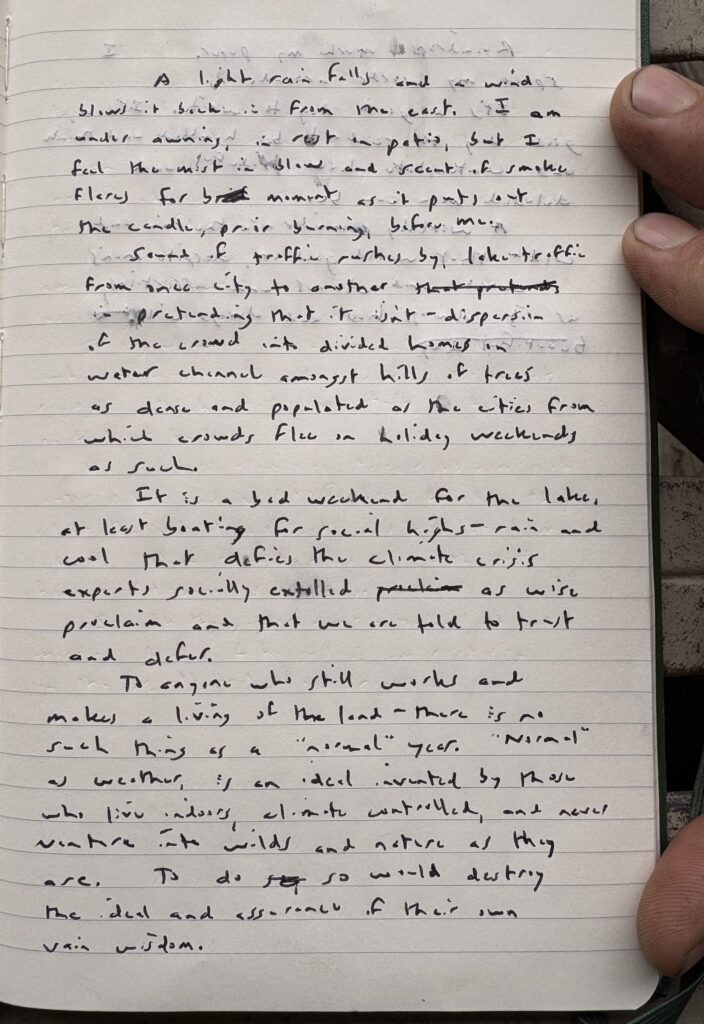 A light rain falls and a wind
blows it back in from the east. I am
under awning, in rest on patio, but I
feel the mist in blow and scent of smoke
flares for moment as it puts out
the candle, prior burning, before me.
Sound of traffic rushes by, lake-traffic
from once city to another that pretends
in pretending that it isn't - dispersin
of the crowd into divided homes on
water channel amongst hills of trees
as dense and populated as the cities from
which crowds flee on holiday weekends
as such.
It is a bad weekend for the lake,
at least boating for social highs - rain and
cool that defies the climate crisis
experts socially extolled proclaim as wise
proclaim and that we are told to trust
and defer.
To anyone who still works and
makes a living of the land - there is no
such thing as a "normal" year. "Normal"
as weather, is an ideal invented by those
who live indoors, climate controlled, and never
venture into wilds and nature as they
are. To do so would destroy
the ideal and assurance of their own
vain wisdom.